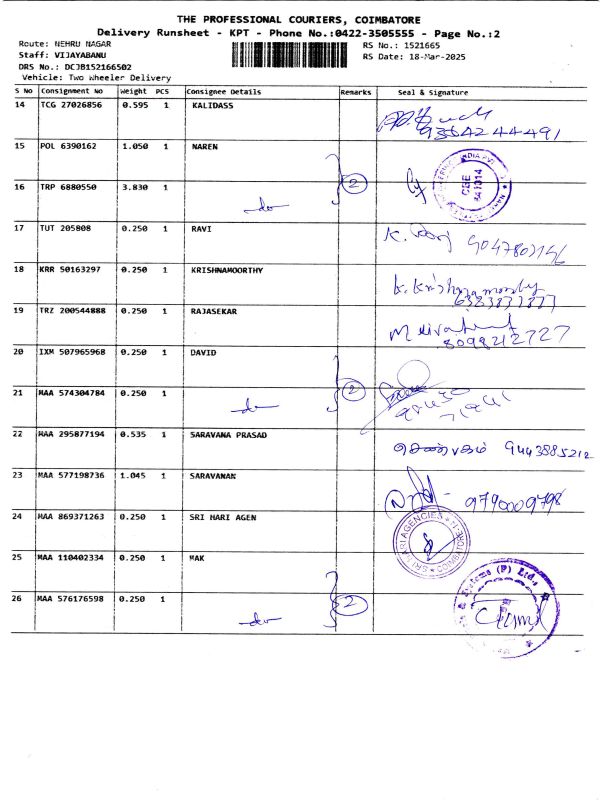 THE PROFESSIONAL COURIERS, COIMBATORE
Delivery Runsheet - KPT - Phone No.:0422-3505555 - Page No.:2
Route: NEHRU NAGAR
RS No.: 1521665
Staff: VIJAYABANU
RS Date: 18-Mar-2025
DRS No.: DCJB152166502
Vehicle: Two Wheeler Delivery
S No Consignment No Weight PCS Consignee Details Remarks Seal & Signature
14 TCG 27026856 0.595 1 KALIDASS
9364244491
15 POL 6390162 1.050 1 NAREN
2
16 TRP 6880550 3.830 1
do
CBE
641014
17 TUT 205808 0.250 1 RAVI
K.
18 KRR 50163297 0.250 1 KRISHNAMOORTHY
K. Krishnamoorthy
6383837877
19 TRZ 200544888 0.250 1 RAJASEKAR
8098212727
20 IXM 507965968 0.250 1 DAVID
2
21 MAA 574304784 0.250 1
do
22 MAA 295877194 0.535 1 SARAVANA PRASAD
செண்பகம் 9443885212
23 MAA 577198736 1.045 1 SARAVANAN
9790009798
24 MAA 869371263 0.250 1 SRI HARI AGEN
SRI HARI AGENCIES
25 MAA 110402334 0.250 1 MAK
26 MAA 576176598 0.250 1
do
2
& Systems (P) Ltd.,